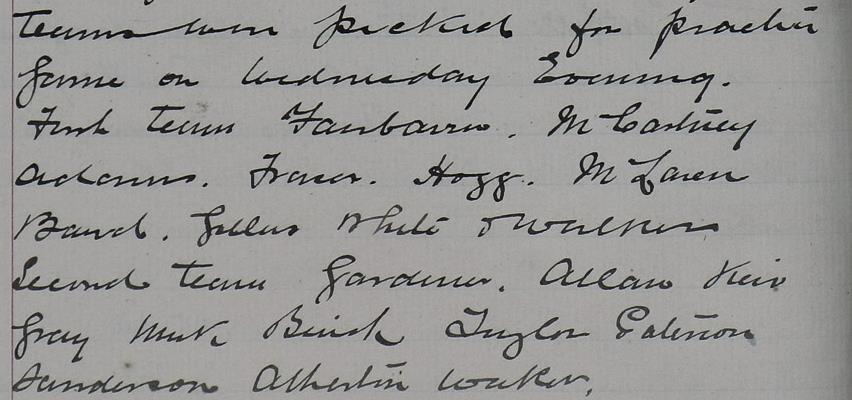 Teams were picked for practice
game on Wednesday Evening.
First team Fairbairn. McCartney
Adams. Fraser. Hogg. McLaren
Baird. Gillies White & Walker
Second team Gardener. Allan Keir
Gray Muir Birch Taylor Paterson
Sanderson Atherton Walker.